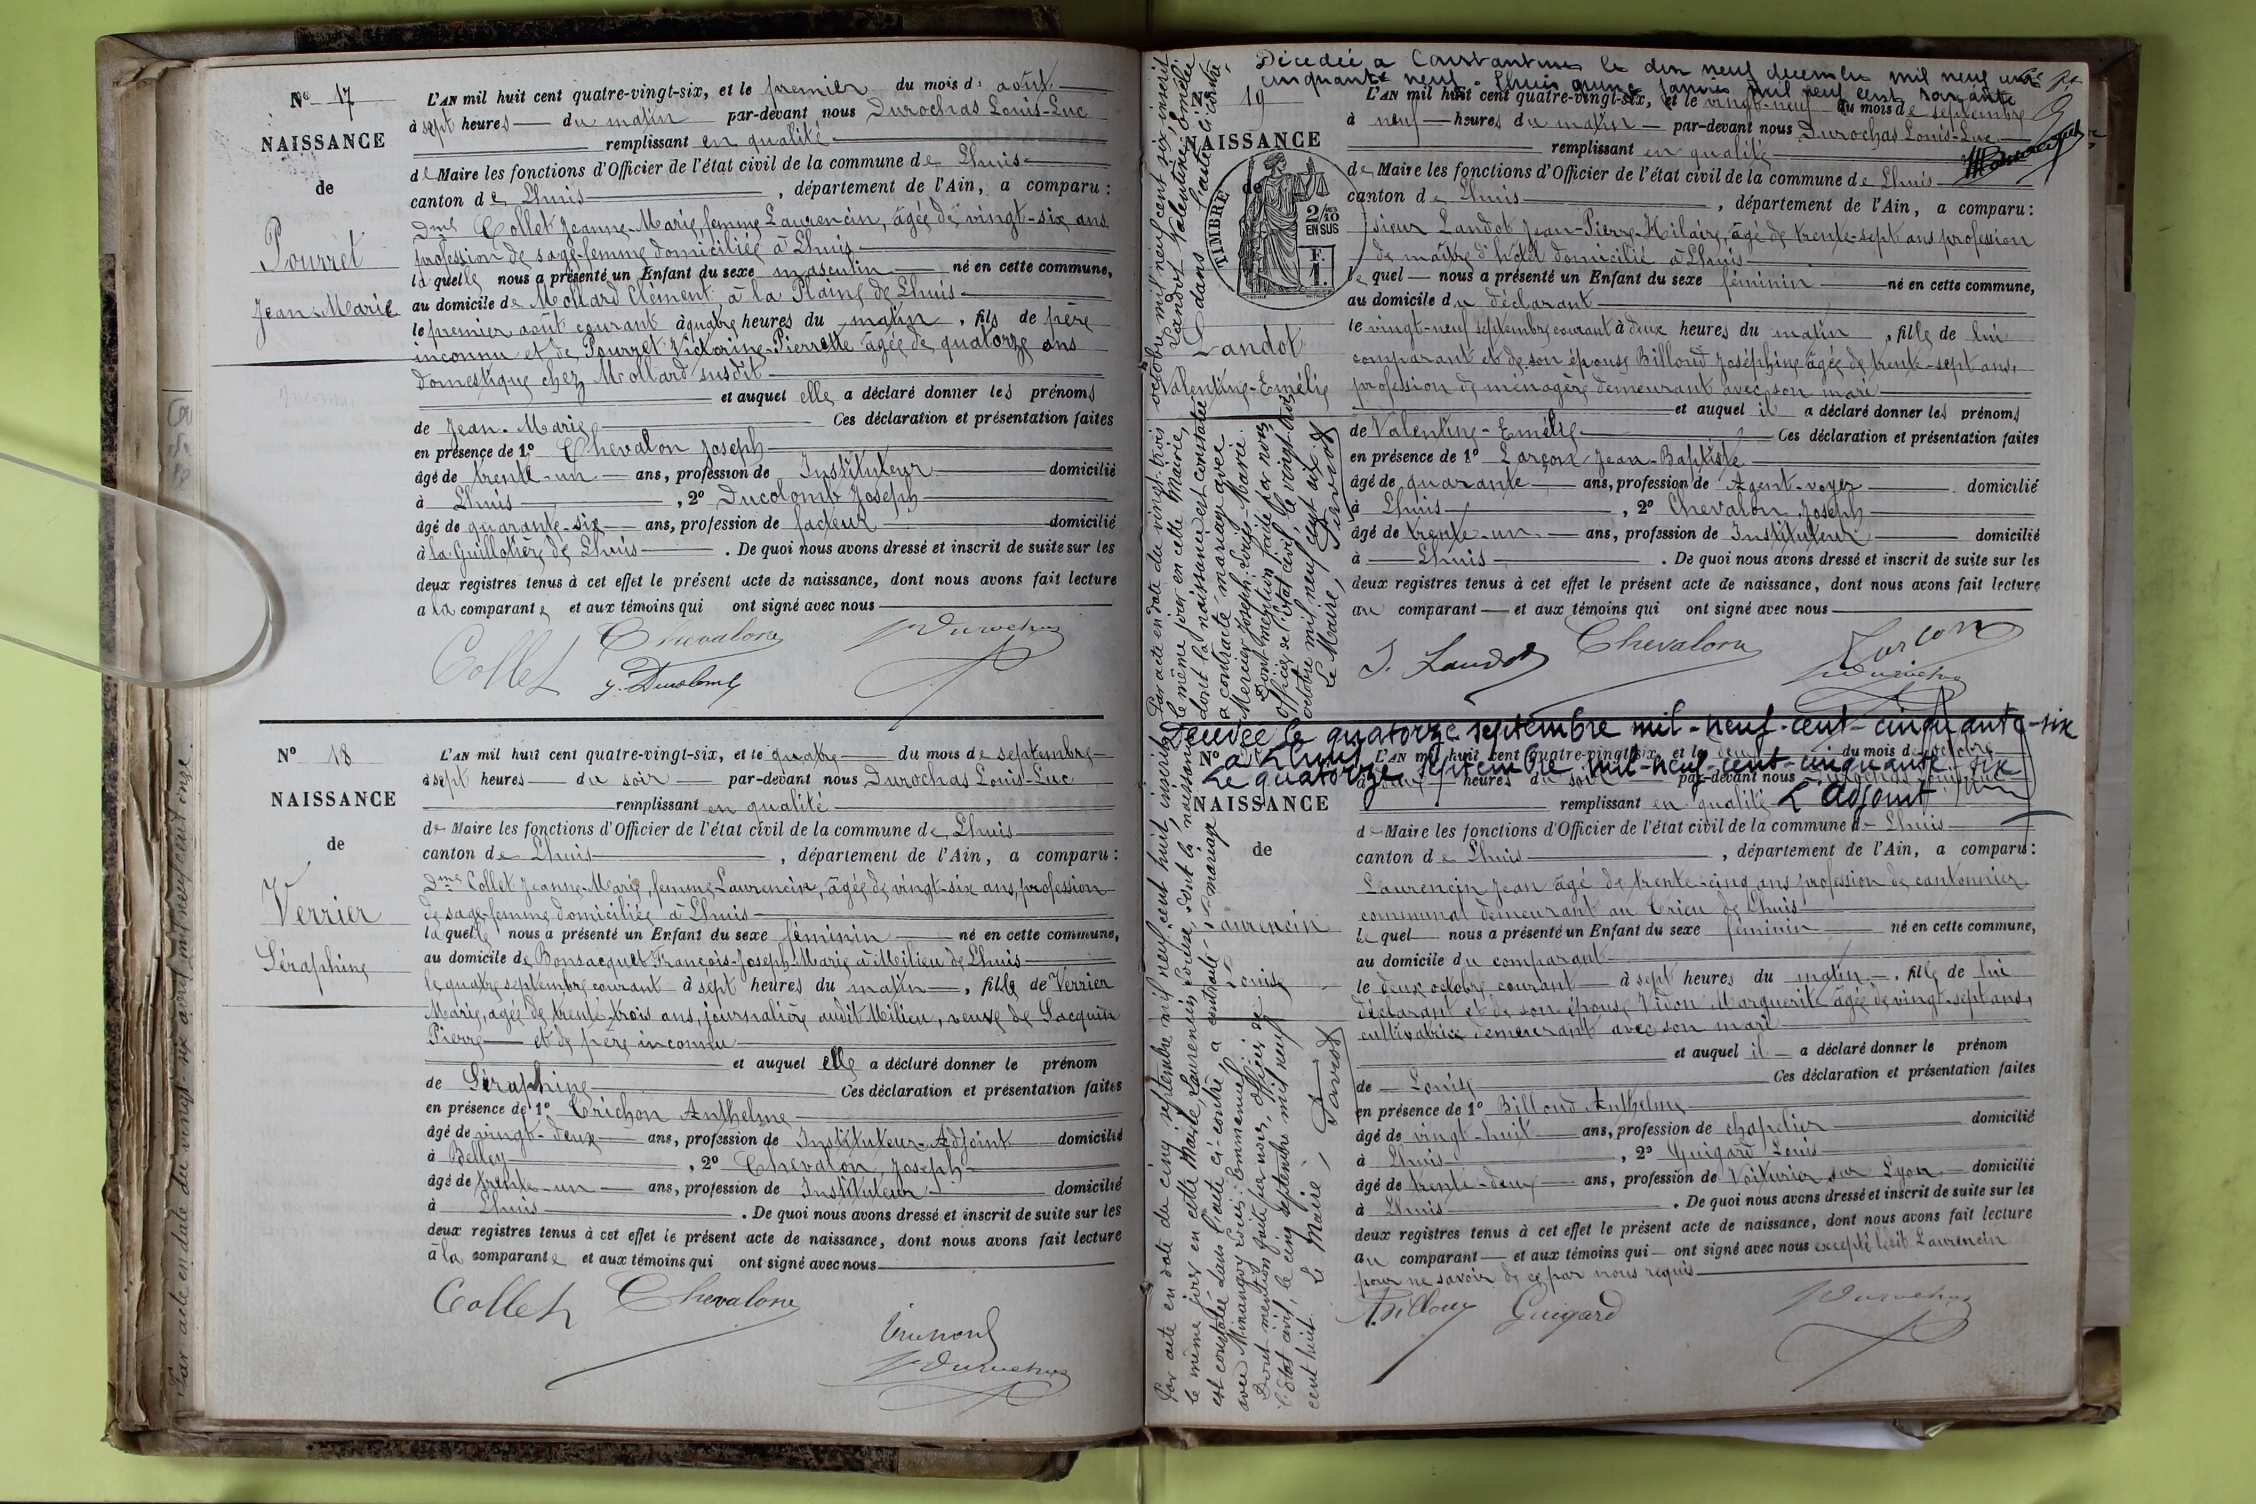 N° 17
NAISSANCE
de
Pourret
Jean-Marie
L'AN mil huit cent quatre-vingt-six, et le premier du mois d' août
à sept heures du matin par-devant nous Durochas Louis-Luc
remplissant en qualité
de Maire les fonctions d'Officier de l'état civil de la commune de Lhuis
canton de Lhuis, département de l'Ain, a comparu :
Dme Collet Jeanne-Marie, femme Laurencin, âgée de vingt-six ans
profession de sage-femme domiciliée à Lhuis
laquelle nous a présenté un Enfant du sexe masculin né en cette commune,
au domicile de Mollard Clément, à la Plaine de Lhuis
le premier août courant à quatre heures du matin, fils de père
inconnu et de Pourret Victorine-Pierrette âgée de quatorze ans
domestique chez Mollard susdit
et auquel elle a déclaré donner les prénoms
de Jean-Marie Ces déclaration et présentation faites
en présence de 1° Chevalon Joseph
âgé de trente-un ans, profession de Instituteur domicilié
à Lhuis, 2° Ducolomb Joseph
âgé de quarante-six ans, profession de facteur domicilié
à la Guillotière de Lhuis. De quoi nous avons dressé et inscrit de suite sur les
deux registres tenus à cet effet le présent acte de naissance, dont nous avons fait lecture
a la comparante et aux témoins qui ont signé avec nous
Collet Chevalon Durochas
J. Ducolomb
N° 18
NAISSANCE
de
Verrier
Séraphine
L'AN mil huit cent quatre-vingt-six, et le quatre du mois de septembre
à sept heures du soir par-devant nous Durochas Louis-Luc
remplissant en qualité
de Maire les fonctions d'Officier de l'état civil de la commune de Lhuis
canton de Lhuis, département de l'Ain, a comparu :
Dme Collet Jeanne-Marie, femme Laurencin, âgée de vingt-six ans, profession
de sage-femme domiciliée à Lhuis
laquelle nous a présenté un Enfant du sexe féminin né en cette commune,
au domicile de Bonsacquet François-Joseph-Marie à Milieu de Lhuis
le quatre septembre courant à sept heures du matin, fille de Verrier
Marie, agée de trente-trois ans, journalière audit Milieu, veuve de Jacquin
Pierre et de père inconnu
et auquel elle a déclaré donner le prénom
de Séraphine Ces déclaration et présentation faites
en présence de 1° Trichon Anthelme
âgé de vingt-deux ans, profession de Instituteur-Adjoint domicilié
à Belley, 2° Chevalon Joseph
âgé de trente-un ans, profession de Instituteur domicilié
à Lhuis. De quoi nous avons dressé et inscrit de suite sur les
deux registres tenus à cet effet le présent acte de naissance, dont nous avons fait lecture
à la comparante et aux témoins qui ont signé avec nous
Collet Chevalon
Durochas
Par acte en date du vingt-six avril mil neuf cent onze
Décédée à Constantine le dix neuf décembre mil neuf cent
cinquante neuf. Lhuis janvier mil neuf cent soixante
N° 19
NAISSANCE
de
TIMBRE
2/10
EN SUS
F.
1.
Landot
Valentine-Emélie
L'AN mil huit cent quatre-vingt-six, et le vingt-neuf du mois de septembre
à neuf heures du matin par-devant nous Durochas Louis-Luc
remplissant en qualité
de Maire les fonctions d'Officier de l'état civil de la commune de Lhuis
canton de Lhuis, département de l'Ain, a comparu :
sieur Landot Jean-Pierre-Hilaire, âgé de trente-sept ans profession
de maître d'hôtel domicilié à Lhuis
lequel nous a présenté un Enfant du sexe féminin né en cette commune,
au domicile du déclarant
le vingt-neuf septembre courant à deux heures du matin, fille de lui
comparant et de son épouse Billoud Joséphine âgée de trente-sept ans,
profession de ménagère demeurant avec son mari
et auquel il a déclaré donner les prénoms
de Valentine-Emélie Ces déclaration et présentation faites
en présence de 1° Larçon Jean-Baptiste
âgé de quarante ans, profession de Agent-voyer domicilié
à Lhuis, 2° Chevalon Joseph
âgé de trente-un ans, profession de Instituteur domicilié
à Lhuis. De quoi nous avons dressé et inscrit de suite sur les
deux registres tenus à cet effet le présent acte de naissance, dont nous avons fait lecture
au comparant et aux témoins qui ont signé avec nous
J. Landot Chevalon Larçon
Durochas
Par acte en date du vingt-trois octobre mil neuf cent six inscrit
le même jour en cette Mairie, Landot Valentine Emélie
dont la naissance est constatée dans l'acte ci-contre,
a contracté mariage avec
Mercier Joseph Louis Marie.
Dont mention faite par nous
officier de l'état civil le vingt-trois
octobre mil neuf cent six
Le Maire,
Décédée le quatorze septembre mil-neuf-cent-cinquante-six
à Lhuis
Le quatorze septembre mil-neuf-cent-cinquante six
L'adjoint
N°
NAISSANCE
de
Laurencin
Louise
L'AN mil huit cent quatre-vingt-six, et le deux du mois d'octobre
heures du soir par-devant nous Durochas Louis-Luc
remplissant en qualité
de Maire les fonctions d'Officier de l'état civil de la commune de Lhuis
canton de Lhuis, département de l'Ain, a comparu :
Laurencin Jean âgé de trente-cinq ans profession de cantonnier
communal demeurant au Crieu de Lhuis
lequel nous a présenté un Enfant du sexe féminin né en cette commune,
au domicile du comparant
le deux octobre courant à sept heures du matin, fille de lui
déclarant et de son épouse Vivon Marguerite âgée de vingt-sept ans,
cultivatrice demeurant avec son mari
et auquel il a déclaré donner le prénom
de Louise Ces déclaration et présentation faites
en présence de 1° Billoud Anthelme
âgé de vingt-huit ans, profession de chapelier domicilié
à Lhuis, 2° Guigard Louis
âgé de trente-deux ans, profession de Voiturier sur Lyon domicilié
à Lhuis. De quoi nous avons dressé et inscrit de suite sur les
deux registres tenus à cet effet le présent acte de naissance, dont nous avons fait lecture
au comparant et aux témoins qui ont signé avec nous excepté ledit Laurencin
pour ne savoir de ce par nous requis
A. Billoud Guigard Durochas
Par acte en date du cinq septembre mil neuf cent huit, inscrit
le même jour en cette Mairie, Laurencin Louise, dont la naissance
est constatée dans l'acte ci-contre a contracté mariage
avec Minangoy Louis Emmanuel.
Dont mention faite par nous, officier de
l'état civil, le cinq septembre mil neuf
cent huit. Le Maire,